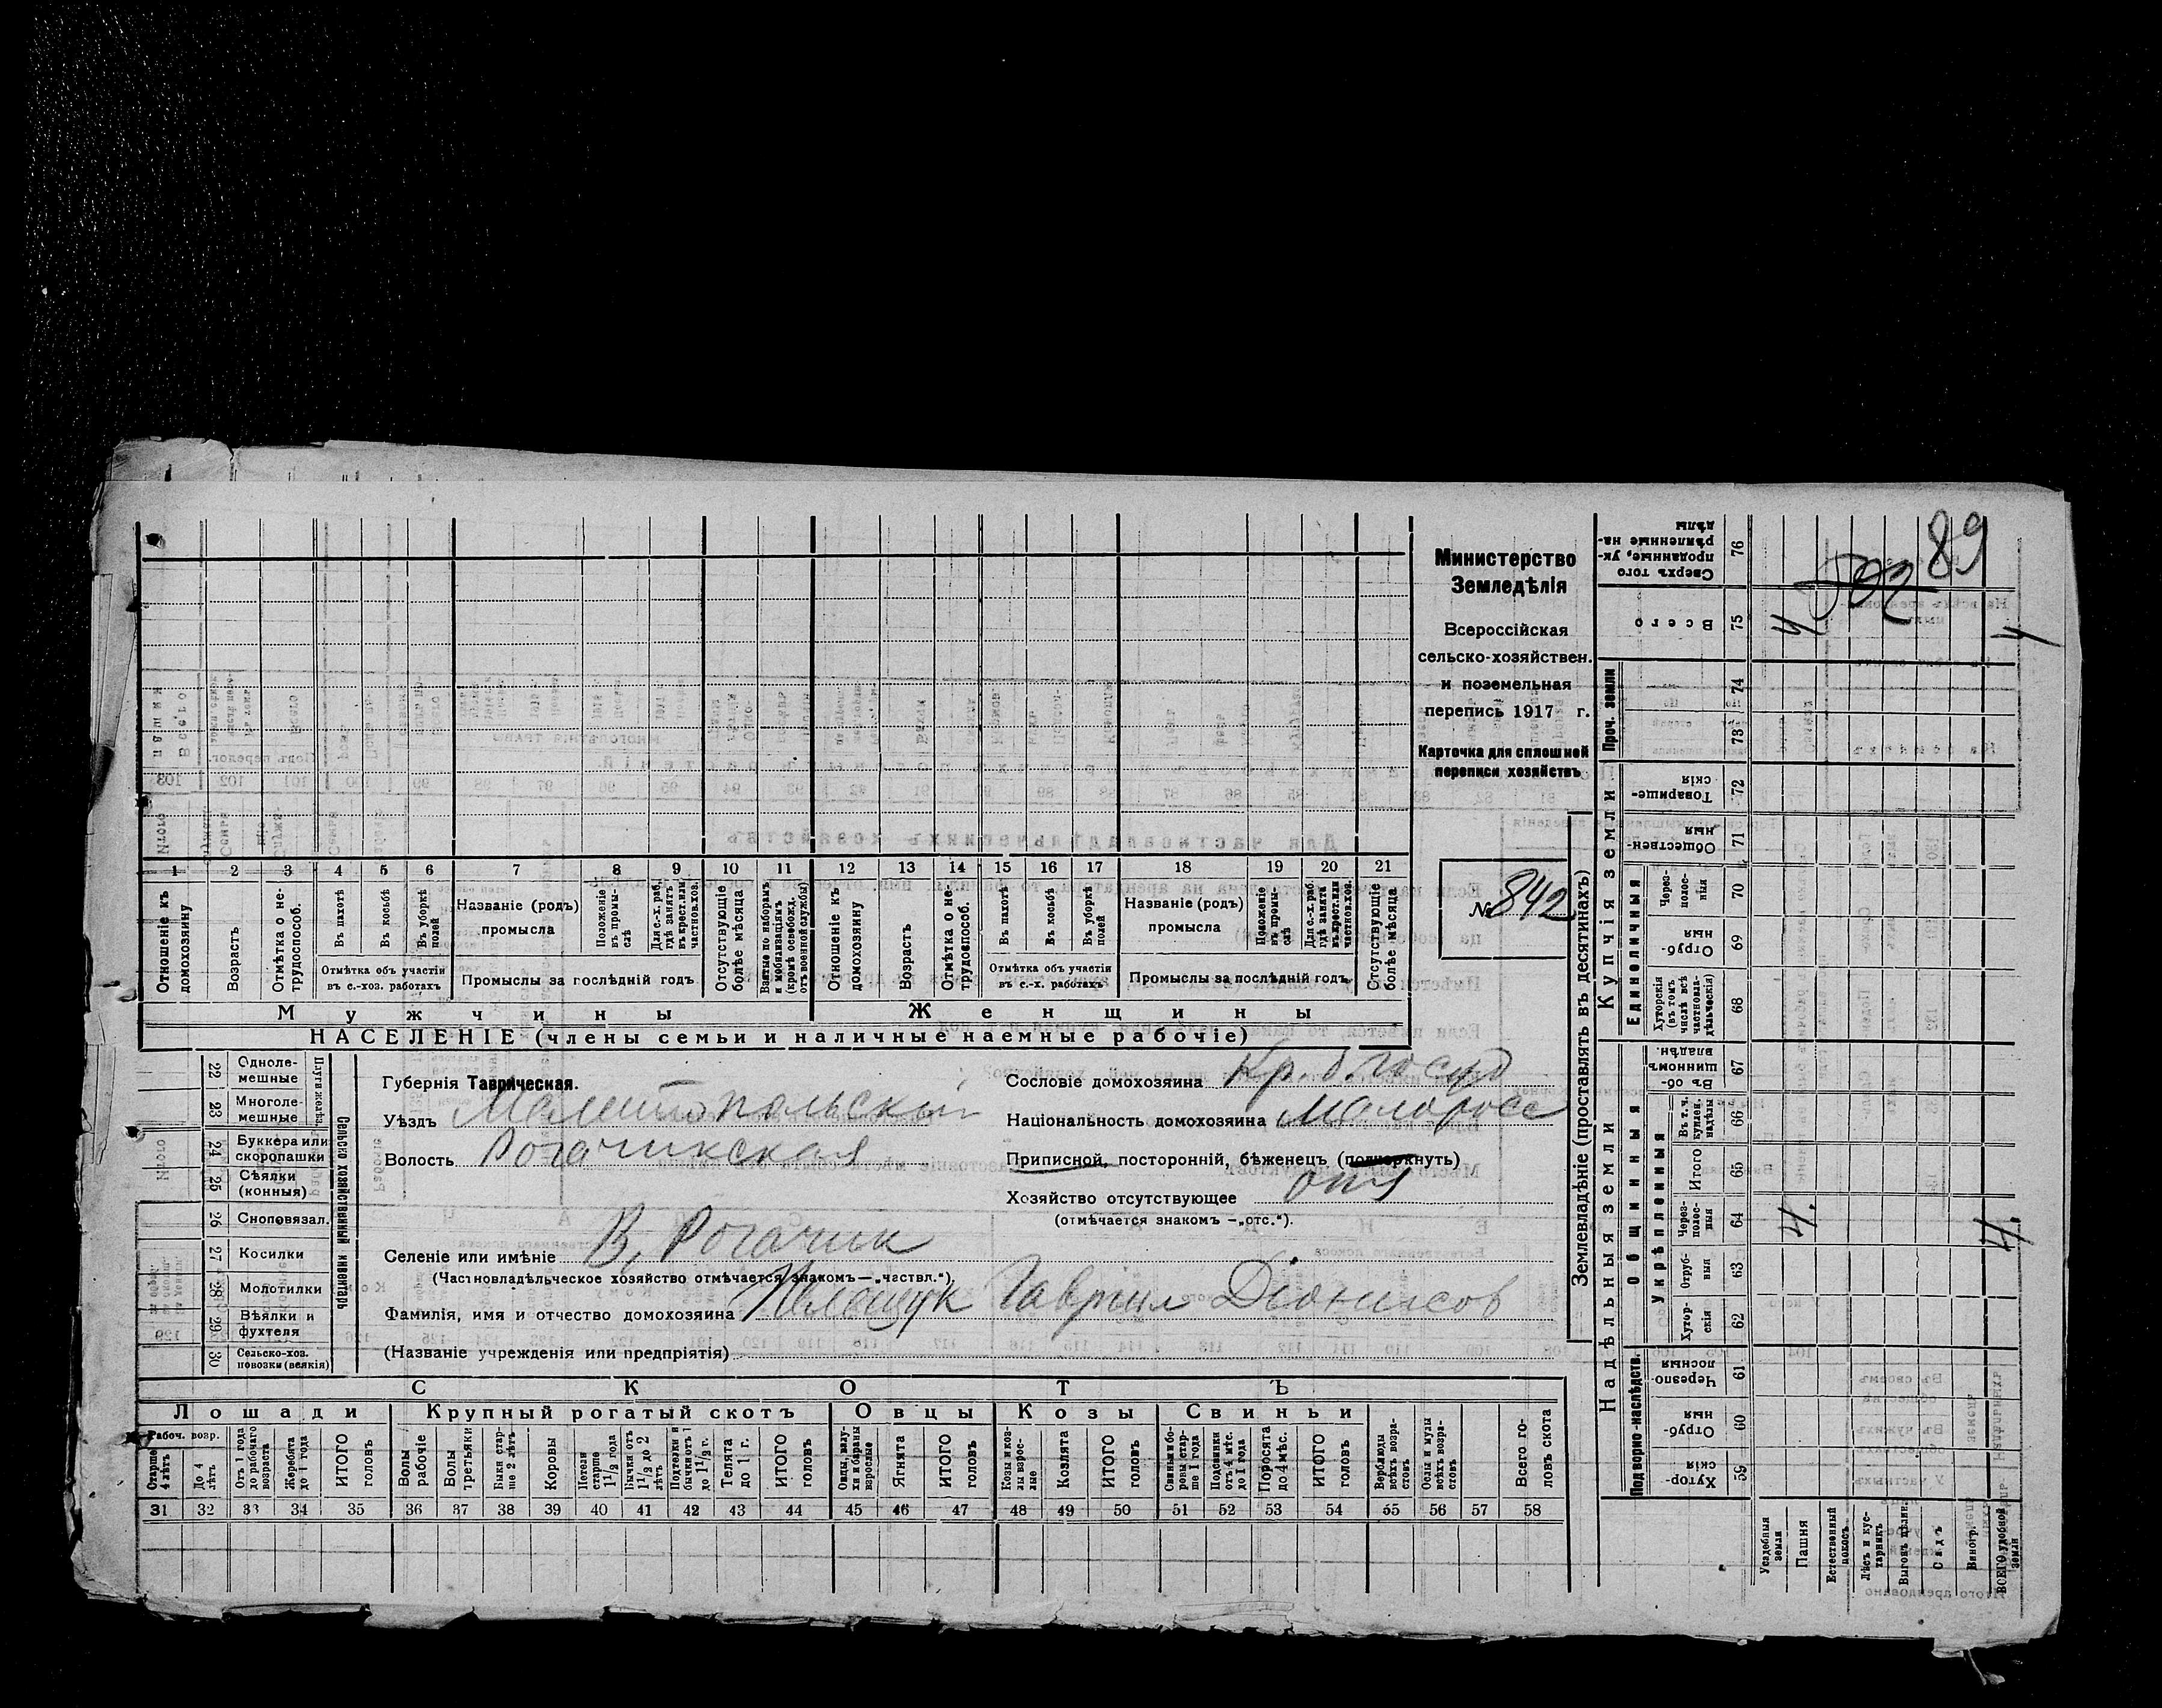 89
502
Министерство
Земледѣлія
Всероссійская
сельско-хозяйствен.
и поземельная
перепись 1917 г.
Карточка для сплошной
переписи хозяйствъ
№ 842
1 2 3 4 5 6 7 8 9 10 11 12 13 14 15 16 17 18 19 20 21
Отношеніе къ домохозяину
Возрастъ
Отмѣтка о нетрудоспособ.
Въ пахотѣ
Въ косьбѣ
Въ уборкѣ полей
Отмѣтка объ участіи въ с.-хоз. работахъ
Названіе (родъ) промысла
Положеніе въ промыслѣ
Для с.-х. раб. гдѣ занятъ въ крест. или частнов. хоз.
Промыслы за послѣдній годъ
Отсутствующіе болѣе мѣсяца
Взятые по наборамъ и мобилизаціямъ (кромѣ освобожд. отъ военной службы)
Отношеніе къ домохозяину
Возрастъ
Отмѣтка о нетрудоспособ.
Въ пахотѣ
Въ косьбѣ
Въ уборкѣ полей
Отмѣтка объ участіи въ с.-х. работахъ
Названіе (родъ) промысла
Положеніе въ промыслѣ
Для с.-х. раб. гдѣ занята въ крест. или частнов. хоз.
Промыслы за послѣдній годъ
Отсутствующіе болѣе мѣсяца
Мужчины
Женщины
НАСЕЛЕНІЕ (члены семьи и наличные наемные рабочіе)
22 Однолемешные
23 Многолемешные
Плуги желѣз.
24 Буккера или скоропашки
25 Сѣялки (конныя)
26 Сноповязал.
27 Косилки
28 Молотилки
29 Вѣялки и фухтеля
30 Сельско-хоз. повозки (всякія)
Сельско хозяйственный инвентарь
Губернія Таврическая.
Уѣздъ Мелитопольскій
Волость Рогачикская
Сословіе домохозяина Кр. б. госуд
Національность домохозяина Малоросс
Приписной, посторонній, бѣженецъ (подчеркнуть)
Хозяйство отсутствующее отс
(отмѣчается знакомъ —„отс.“).
Селеніе или имѣніе В. Рогачик
(Частновладѣльческое хозяйство отмѣчается знакомъ—„частвл.“).
Фамилія, имя и отчество домохозяина Гавріил Діонисов
(Названіе учрежденія или предпріятія)
СКОТЪ
Лошади
Крупный рогатый скотъ
Овцы
Козы
Свиньи
Рабоч. возр.
Старше 4 лѣтъ
До 4 лѣтъ
Отъ 1 года до рабочаго возраста
Жеребята до 1 года
ИТОГО головъ
Волы рабочіе
Волы третьяки
Быки старше 2 лѣтъ
Коровы
Нетели старше 1 1/2 года
Бычки отъ 1 1/2 до 2 лѣтъ
Подтелки и бычки отъ 1 до 1 1/2 г.
Телята до 1 г.
ИТОГО головъ
Овцы, валухи и бараны взрослые
Ягнята
ИТОГО головъ
Козы и козлы взрослые
Козлята
ИТОГО головъ
Свиньи и боровы старше 1 года
Подсвинки отъ 4 мѣс. до 1 года
Поросята до 4 мѣс.
ИТОГО головъ
Верблюды всѣхъ возрастовъ
Ослы и мулы всѣхъ возрастовъ
Всего головъ скота
31 32 33 34 35 36 37 38 39 40 41 42 43 44 45 46 47 48 49 50 51 52 53 54 55 56 57 58
Землевладѣніе (проставлять въ десятинахъ)
Купчія земли
Надѣльныя земли
Сверхъ того проданные, укрѣпленные надѣлы 76
Всего 75
4
4
Проч. земли
74
73
Товарищескія 72
Общественныя 71
Единоличныя
Черезполосныя 70
Отрубныя 69
Хуторскія (въ томъ числѣ всѣ частновладѣльческія) 68
Общинныя
Въ общинномъ владѣн. 67
Укрѣпленныя
Въ т. ч. куплен. надѣлы 66
Итого 65
Черезполосныя 64
4.
4.
Отрубныя 63
Хуторскія 62
Подворно-наслѣдств.
Черезполосныя 61
Отрубныя 60
Хуторскія 59
Усадебныя земли
Пашня
Естественный покосъ
Лѣсъ и кустарникъ
Выгонъ цѣлин.
Садъ
Виногр.
ВСЕГО удобной земли